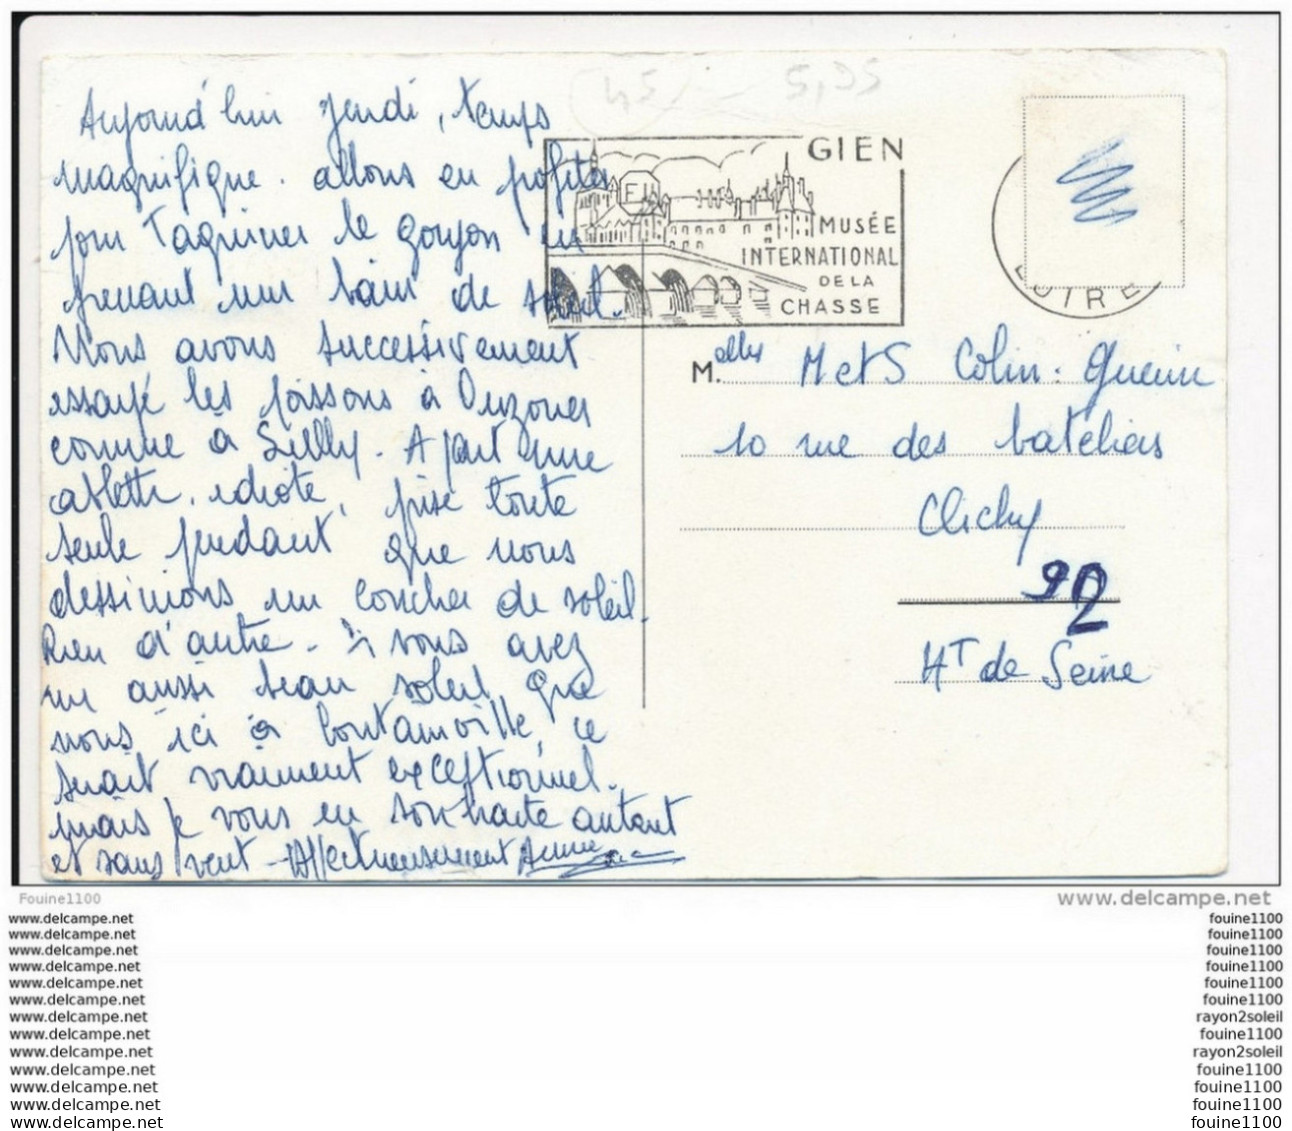 45 5,35
Aujourd'hui jeudi, temps
magnifique. allons en profiter
pour Taquiner le goujon en
prenant un bain de soleil.
Nous avons successivement
essayé les poissons à Ouzouer
comme à Sully. A part une
ablette, idiote, prise toute
seule pendant que nous
dessinions un coucher de soleil.
Rien d'autre. Si vous avez
un aussi beau soleil, que
nous ici à 
serait vraiment exceptionnel.
mais je vous en souhaite autant
et sans vent - Affectueusement
GIEN
MUSÉE
INTERNATIONAL
DE LA
CHASSE
LOIRE
M.elles M et S Colin. Guerin
10 rue des bateliers
Clichy
92
Ht de Seine
Fouine1100
www.delcampe.net
www.delcampe.net
www.delcampe.net
www.delcampe.net
www.delcampe.net
www.delcampe.net
www.delcampe.net
www.delcampe.net
www.delcampe.net
www.delcampe.net
www.delcampe.net
www.delcampe.net
www.delcampe.net
www.delcampe.net
fouine1100
fouine1100
fouine1100
fouine1100
fouine1100
fouine1100
rayon2soleil
fouine1100
rayon2soleil
fouine1100
fouine1100
fouine1100
fouine1100